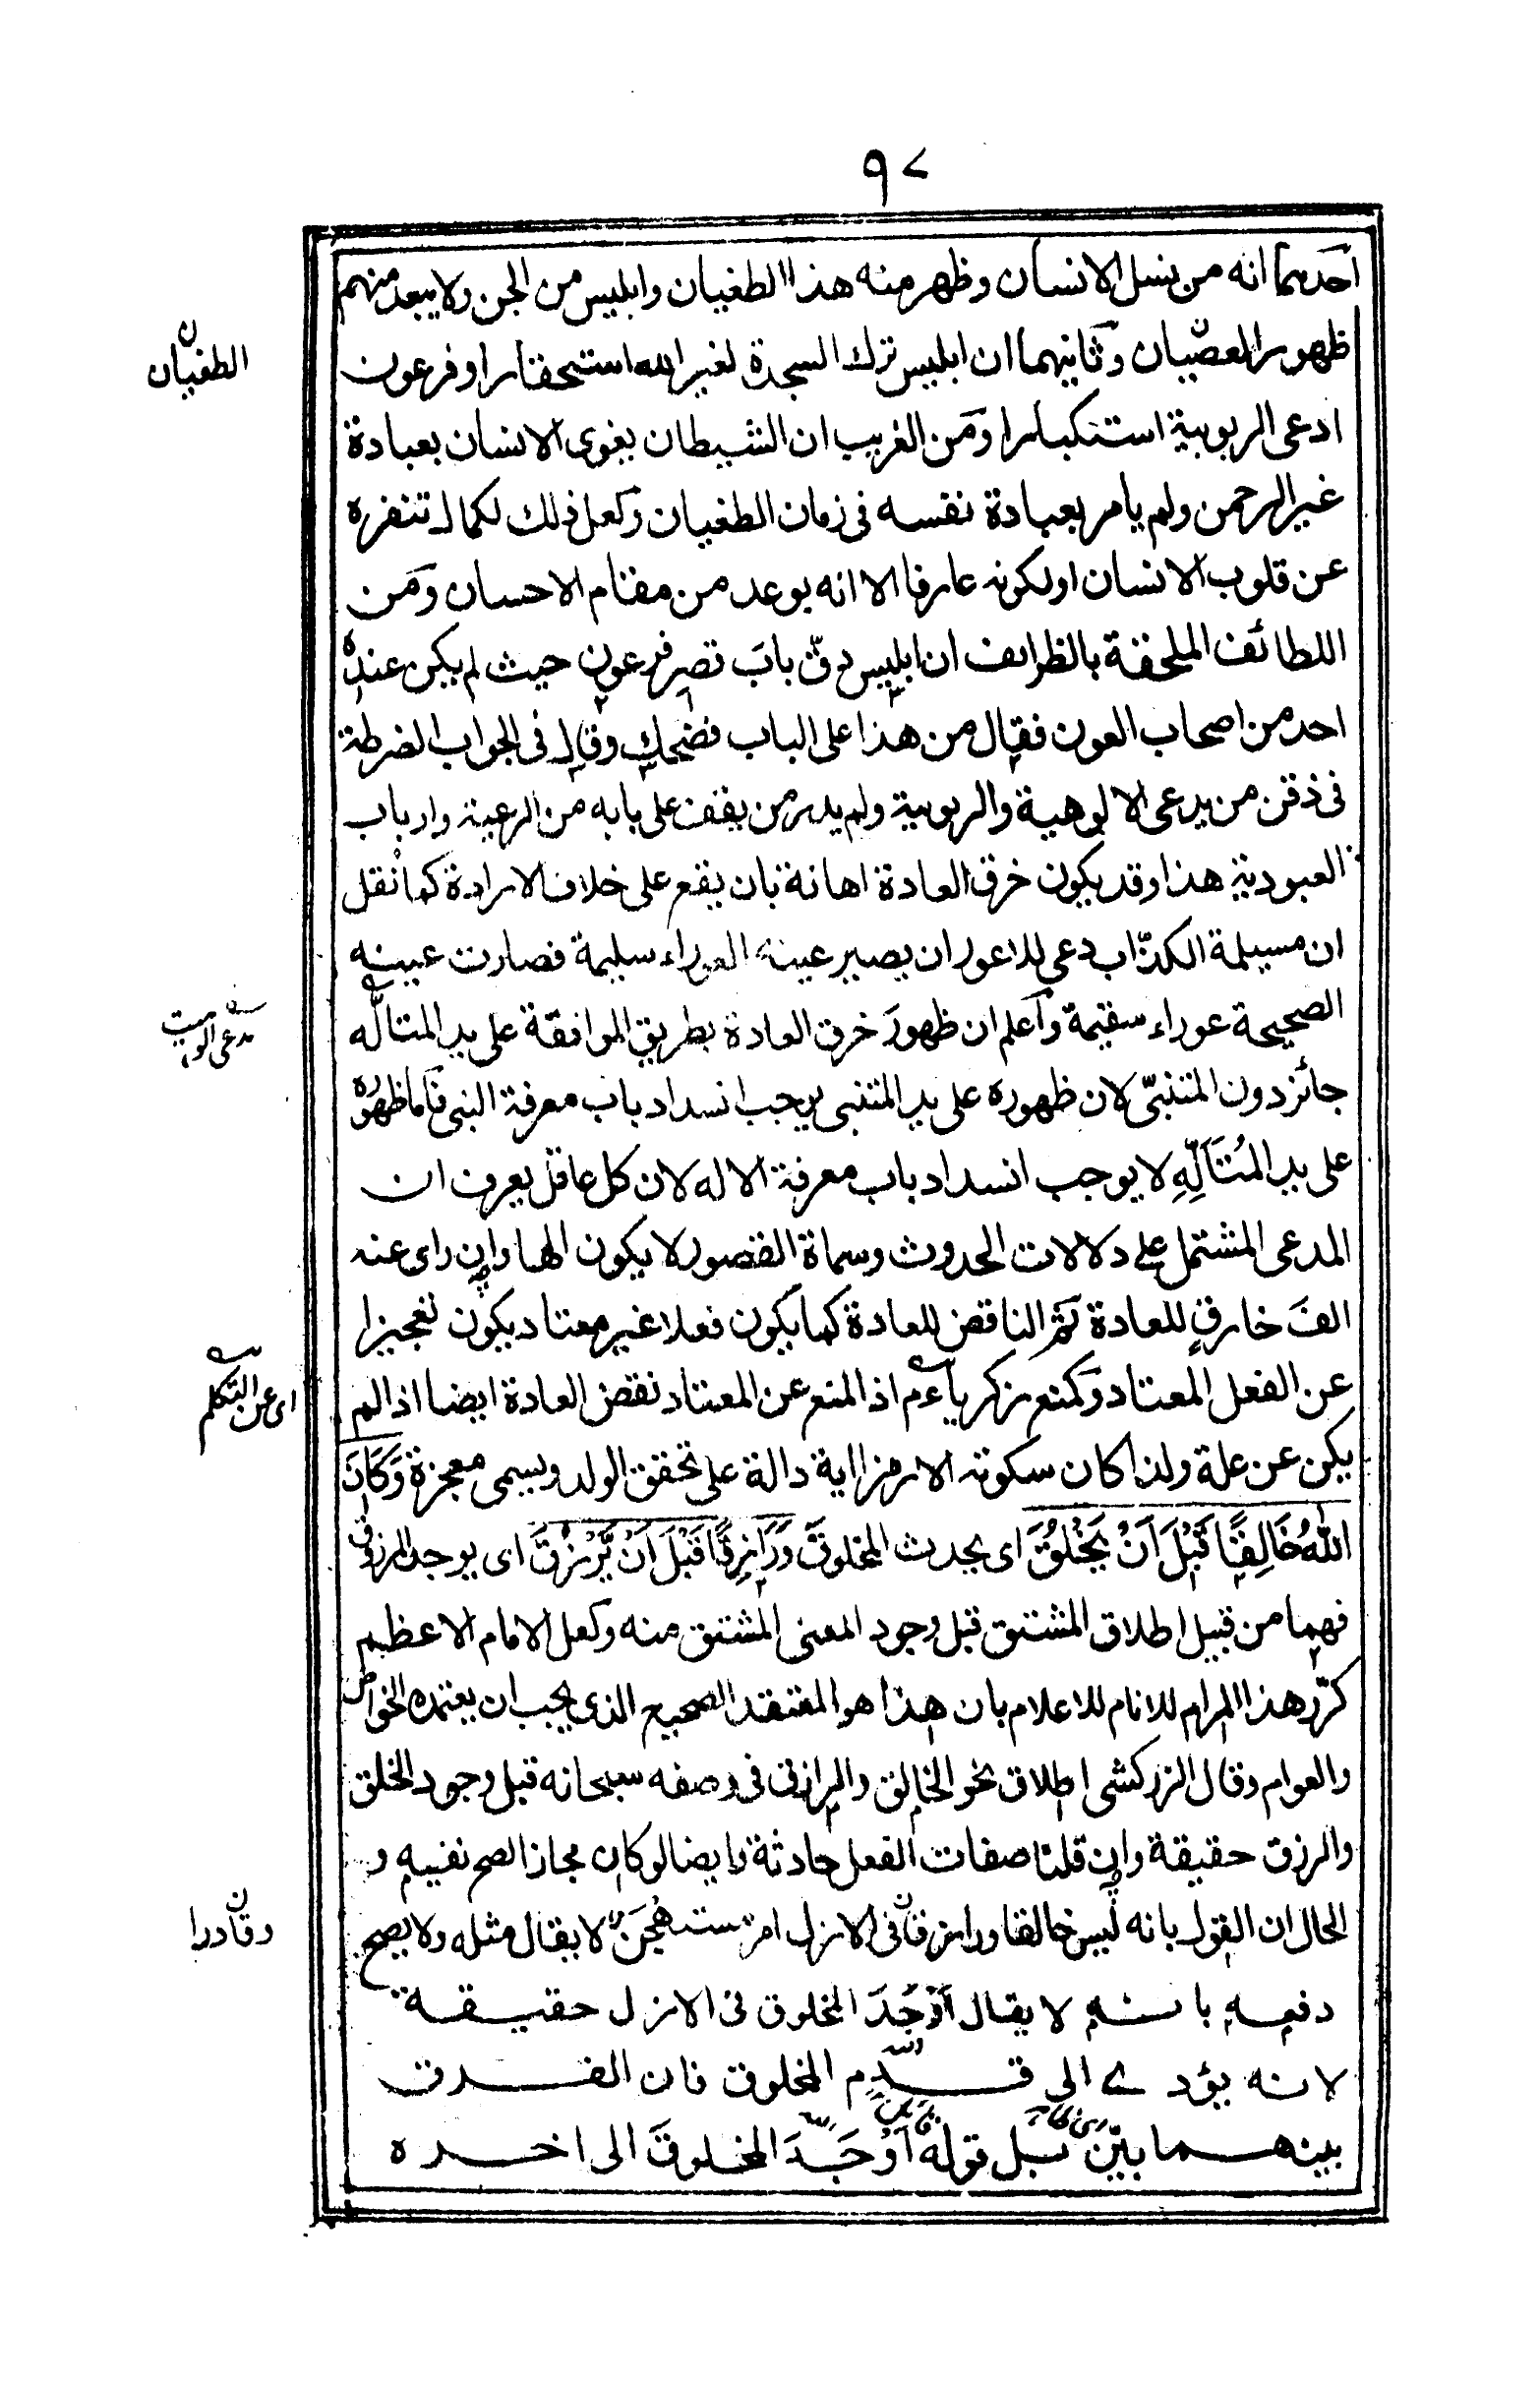 ٩٧
احدهما انه من نسل الانسان وظهر منه هذا الطغيان وابليس من الجن ولا يبعد منهم
ظهور العصيان وثانيهما ان ابليس ترك السجدة لغير الله استحقارا وفرعون
ادعى الربوبية استكبارا ومن الغريب ان الشيطان يغوى الانسان بعبادة
غير الرحمن ولم يامر بعبادة نفسه فى زمان الطغيان ولعل ذلك لكمال تنفره
عن قلوب الانسان او لكونه عارفا الا انه بوعد من مقام الاحسان ومن
اللطائف الملحقة بالظرائف ان ابليس دقّ بابَ قصر فرعون حيث لم يكن عنده
احد من اصحاب العون فقال من هذا على الباب فضحك وقال فى الجواب الضرطة
فى ذقن من يدعى الالوهية والربوبية ولم يدر من يقف على بابه من الرعية وارباب
العبودية هذا وقد يكون خرق العادة اهانة بان يقع على خلاف الارادة كما نقل
ان مسيلمة الكذّاب دعى للاعور ان يصير عينه العوراء سليمة فصارت عينه
الصحيحة عوراء سقيمة واعلم ان ظهورَ خرق العادة بطريق الموافقة على يد المتألّه
جائز دون المتنبّى لان ظهوره على يد المتنبى يوجب انسداد باب معرفة النبى فاما ظهوره
على يد المُتَألِّهِ لا يوجب انسداد باب معرفة الاله لان كل عاقل يعرف ان
المدعى المشتمل على دلالات الحدوث وسماة القصور لا يكون الها وان راى عنه
الفَ خارقٍ للعادة ثم الناقض للعادة كما يكون فعلا غير معتاد يكون تعجيزا
عن الفعل المعتاد وكمنع زكرياء عم اذ المنع عن المعتاد نقض العادة ايضا اذا لم
يكن عن علة ولذا كان سكوته الا رمزا اية دالة على تحقق الولد ويسمى معجزة وَكَانَ
اللهُ خَالِقًا قَبْلَ اَنْ يَخْلُقَ اى يحدث المخلوق وَرَازِقًا قَبْلَ اَنْ يَّرْزُقَ اى يوجد المرزوق
فهما من قبيل اطلاق المشتق قبل وجود المعنى المشتق منه ولعل الامام الاعظم
كرّر هذا المرام للانام للاعلام بان هذا هو المعتقد الصحيح الذى يجب ان يعتمده الخواص
والعوام وقال الزركشى اطلاق نحو الخالق والرازق فى وصفه سبحانه قبل وجود الخلق
والرزق حقيقة وان قلنا صفات الفعل حادثة وايضا لو كان مجازا لصح نفيه و
الحال ان القول بانه ليس خالقا ورازقا فى الازل امر مستهجَن لا يقال مثله ولا يصح
دفعه بانه لا يقال اَوْجَدَ المخلوق فى الازل حقيقة
لانه يؤدى الى قدم المخلوق فان الفرق
بينهما بيّن بل قوله اَوْجَدَ المخلوقَ الى اخره
الطغيان
يدعى الوهيت
اى عن التكلم
وقادرا